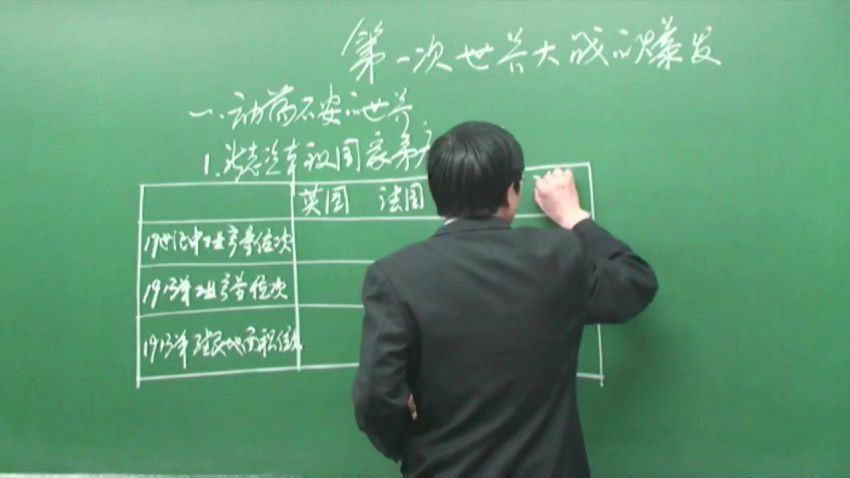 第一次世界大战的爆发
一、动荡不安的世界
1.
英国 法国
19世纪中工业产量位次
1913年工业产量位次
1913年殖民地面积位